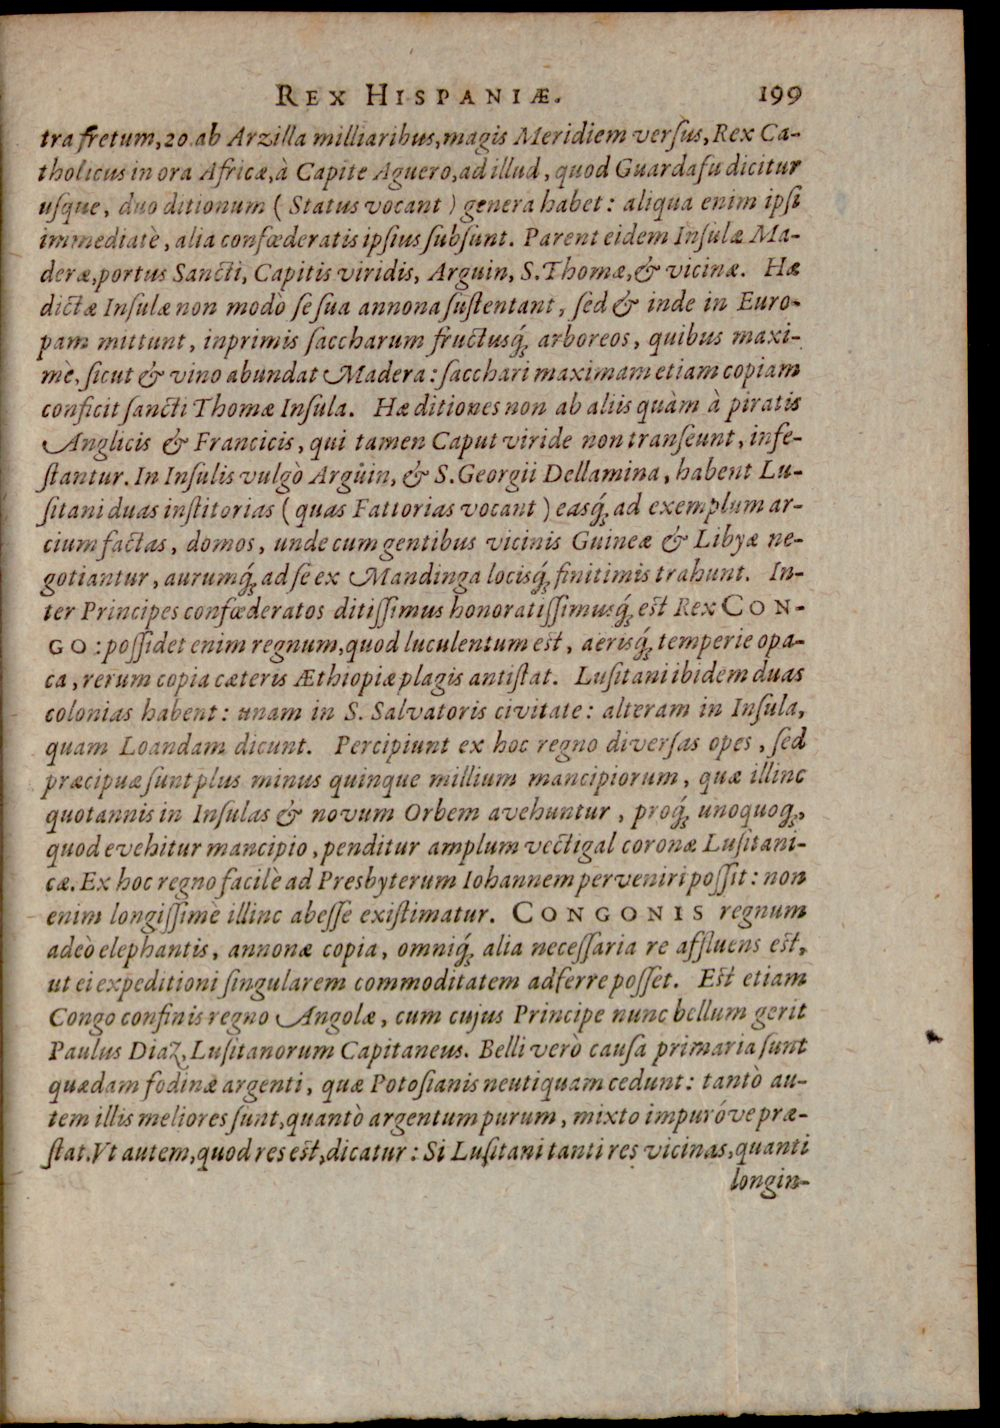 REX HISPANIÆ. 199
tra fretum, 20 ab Arzilla milliaribus, magis Meridiem verſus, Rex Ca-
tholicus in ora Africæ, à Capite Aguero, ad illud, quod Guardafu dicitur
uſque, duo ditionum ( Status vocant ) genera habet: aliqua enim ipſi
immediatè, alia confœderatis ipſius ſubſunt. Parent eidem Inſulæ Ma-
deræ, portus Sancti, Capitis viridis, Arguin, S. Thomæ, & vicinæ. Hæ
dictæ Inſulæ non modò ſe ſua annona ſuſtentant, ſed & inde in Euro-
pam mittunt, inprimis ſaccharum fructusq́; arboreos, quibus maxi-
mè, ſicut & vino abundat Madera: ſacchari maximam etiam copiam
conficit ſancti Thomæ Inſula. Hæ ditiones non ab aliis quàm à piratis
Anglicis & Francicis, qui tamen Caput viride non tranſeunt, infe-
ſtantur. In Inſulis vulgò Argüin, & S. Georgii Dellamina, habent Lu-
ſitani duas inſtitorias ( quas Fattorias vocant ) easq́; ad exemplum ar-
cium factas, domos, unde cum gentibus vicinis Guineæ & Libyæ ne-
gotiantur, aurumq́; ad ſe ex Mandinga locisq́; finitimis trahunt. In-
ter Principes confœderatos ditiſſimus honoratiſſimusq́; eſt Rex CON-
GO: poſſidet enim regnum, quod luculentum eſt, aerisq́; temperie opa-
ca, rerum copia cæteris Æthiopiæ plagis antiſtat. Luſitani ibidem duas
colonias habent: unam in S. Salvatoris civitate: alteram in Inſula,
quam Loandam dicunt. Percipiunt ex hoc regno diverſas opes, ſed
præcipuæ ſunt plus minus quinque millium mancipiorum, quæ illinc
quotannis in Inſulas & novum Orbem avehuntur, proq́; unoquoq;,
quod evehitur mancipio, penditur amplum vectigal coronæ Luſitani-
cæ. Ex hoc regno facilè ad Presbyterum Iohannem perveniri poſſit: non
enim longiſſimè illinc abeſſe exiſtimatur. CONGONIS regnum
adeò elephantis, annonæ copia, omniq́; alia neceſſaria re affluens eſt,
ut ei expeditioni ſingularem commoditatem adferre poſſet. Eſt etiam
Congo confinis regno Angolæ, cum cujus Principe nunc bellum gerit
Paulus Diaz, Luſitanorum Capitaneus. Belli verò cauſa primaria ſunt
quædam fodinæ argenti, quæ Potoſianis neutiquam cedunt: tantò au-
tem illis meliores ſunt, quantò argentum purum, mixto impuróve præ-
ſtat. Vt autem, quod res eſt, dicatur: Si Luſitani tanti res vicinas, quanti
longin-